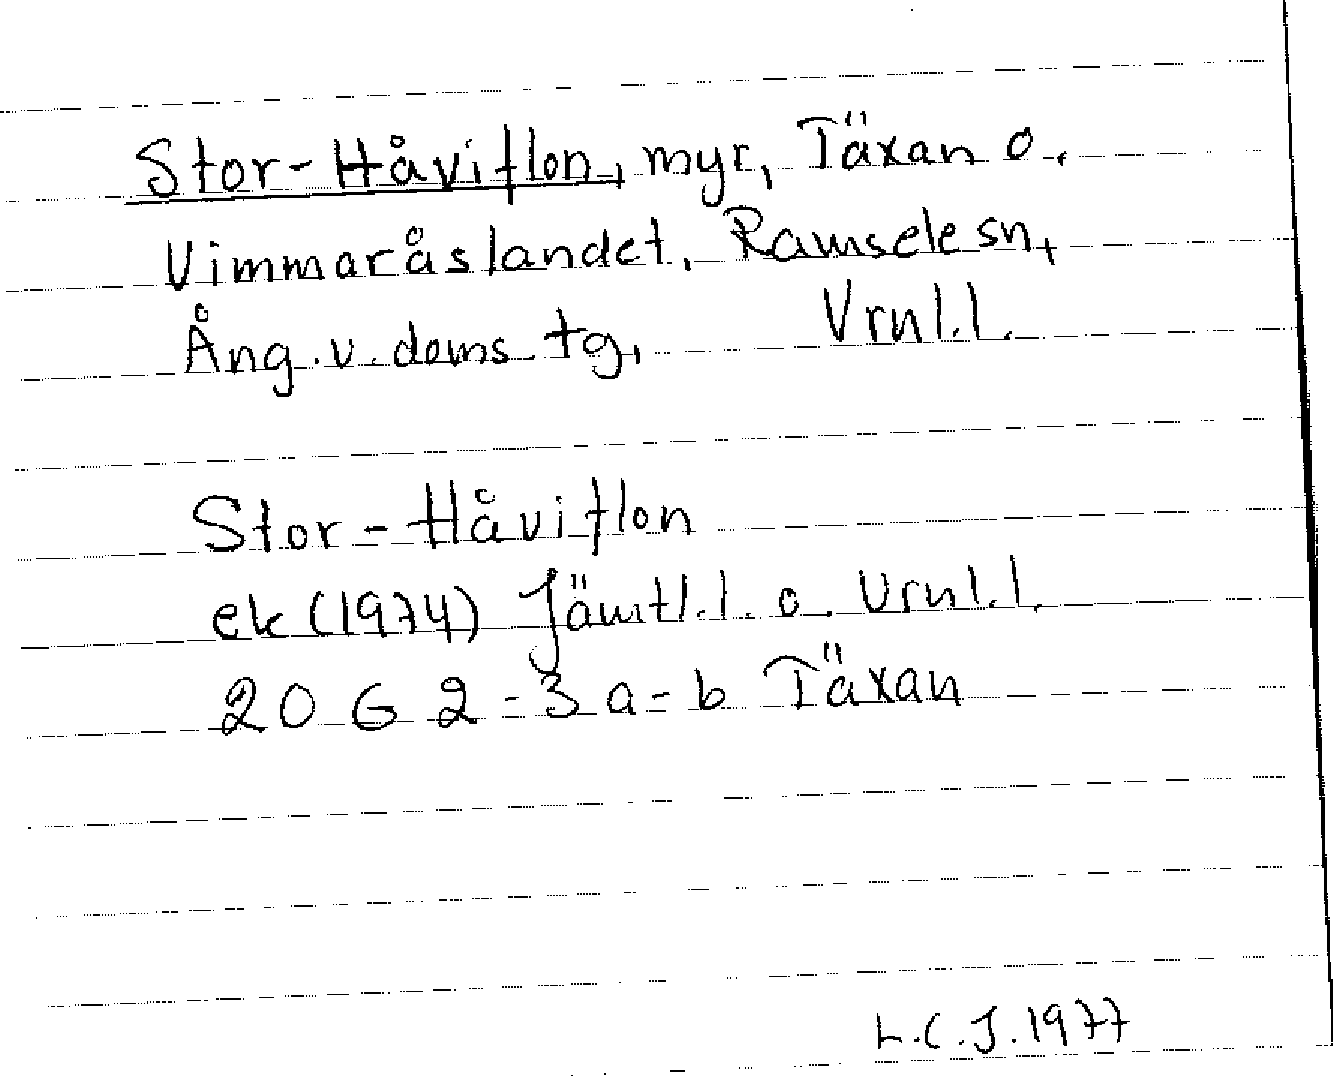 Stor-Håviflon, myr, Täxan o.
Vimmaråslandet, Ramsele sn,
Ång. v. doms tg, Vrnl.l.
Stor-Håviflon
ek (1974) Jämtl.l. o. Vrnl.l.
20 G 2-3 a-b Täxan
L.C.J. 1977